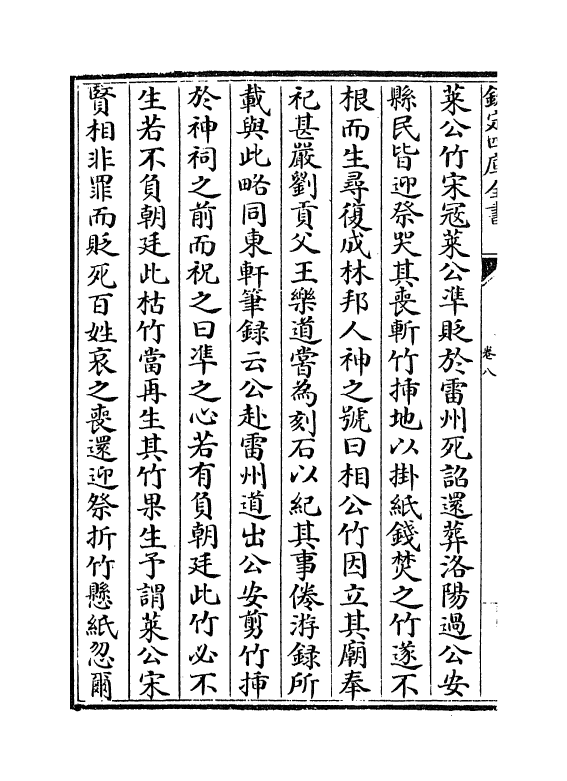 欽定四庫全書
卷八
萊公竹宋冦萊公凖貶於雷州死詔還葬洛陽過公安
縣民皆迎祭哭其喪斬竹揷地以掛紙錢焚之竹遂不
根而生尋復成林邦人神之號曰相公竹因立其廟奉
祀甚嚴劉貢父王樂道嘗為刻石以紀其事倦游録所
載與此略同東軒筆録云公赴雷州道出公安剪竹揷
於神祠之前而祝之曰凖之心若有負朝廷此竹必不
生若不負朝廷此枯竹當再生其竹果生予謂萊公宋
賢相非罪而貶死百姓哀之喪還迎祭折竹懸紙忽爾